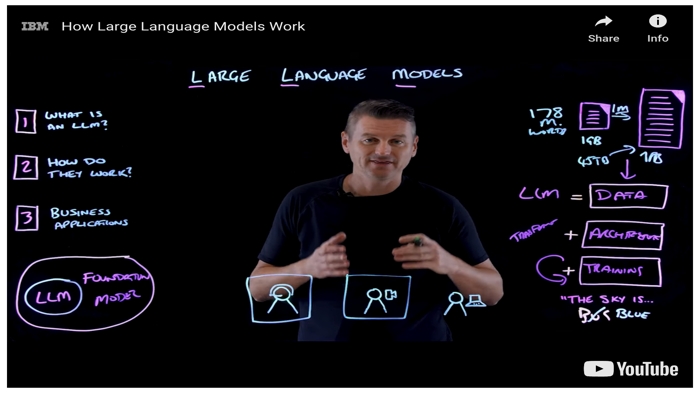 IBM How Large Language Models Work
Share
Info
LARGE LANGUAGE MODELS
1 WHAT IS
AN LLM?
2 HOW DO
THEY WORK?
3 BUSINESS
APPLICATIONS
LLM
FOUNDATION
MODEL
178
M.
WORDS
1GB
1M
45TB
1PB
LLM = DATA
+ ARCHITECTURE
+ TRAINING
"THE SKY IS...
BLUE
YouTube